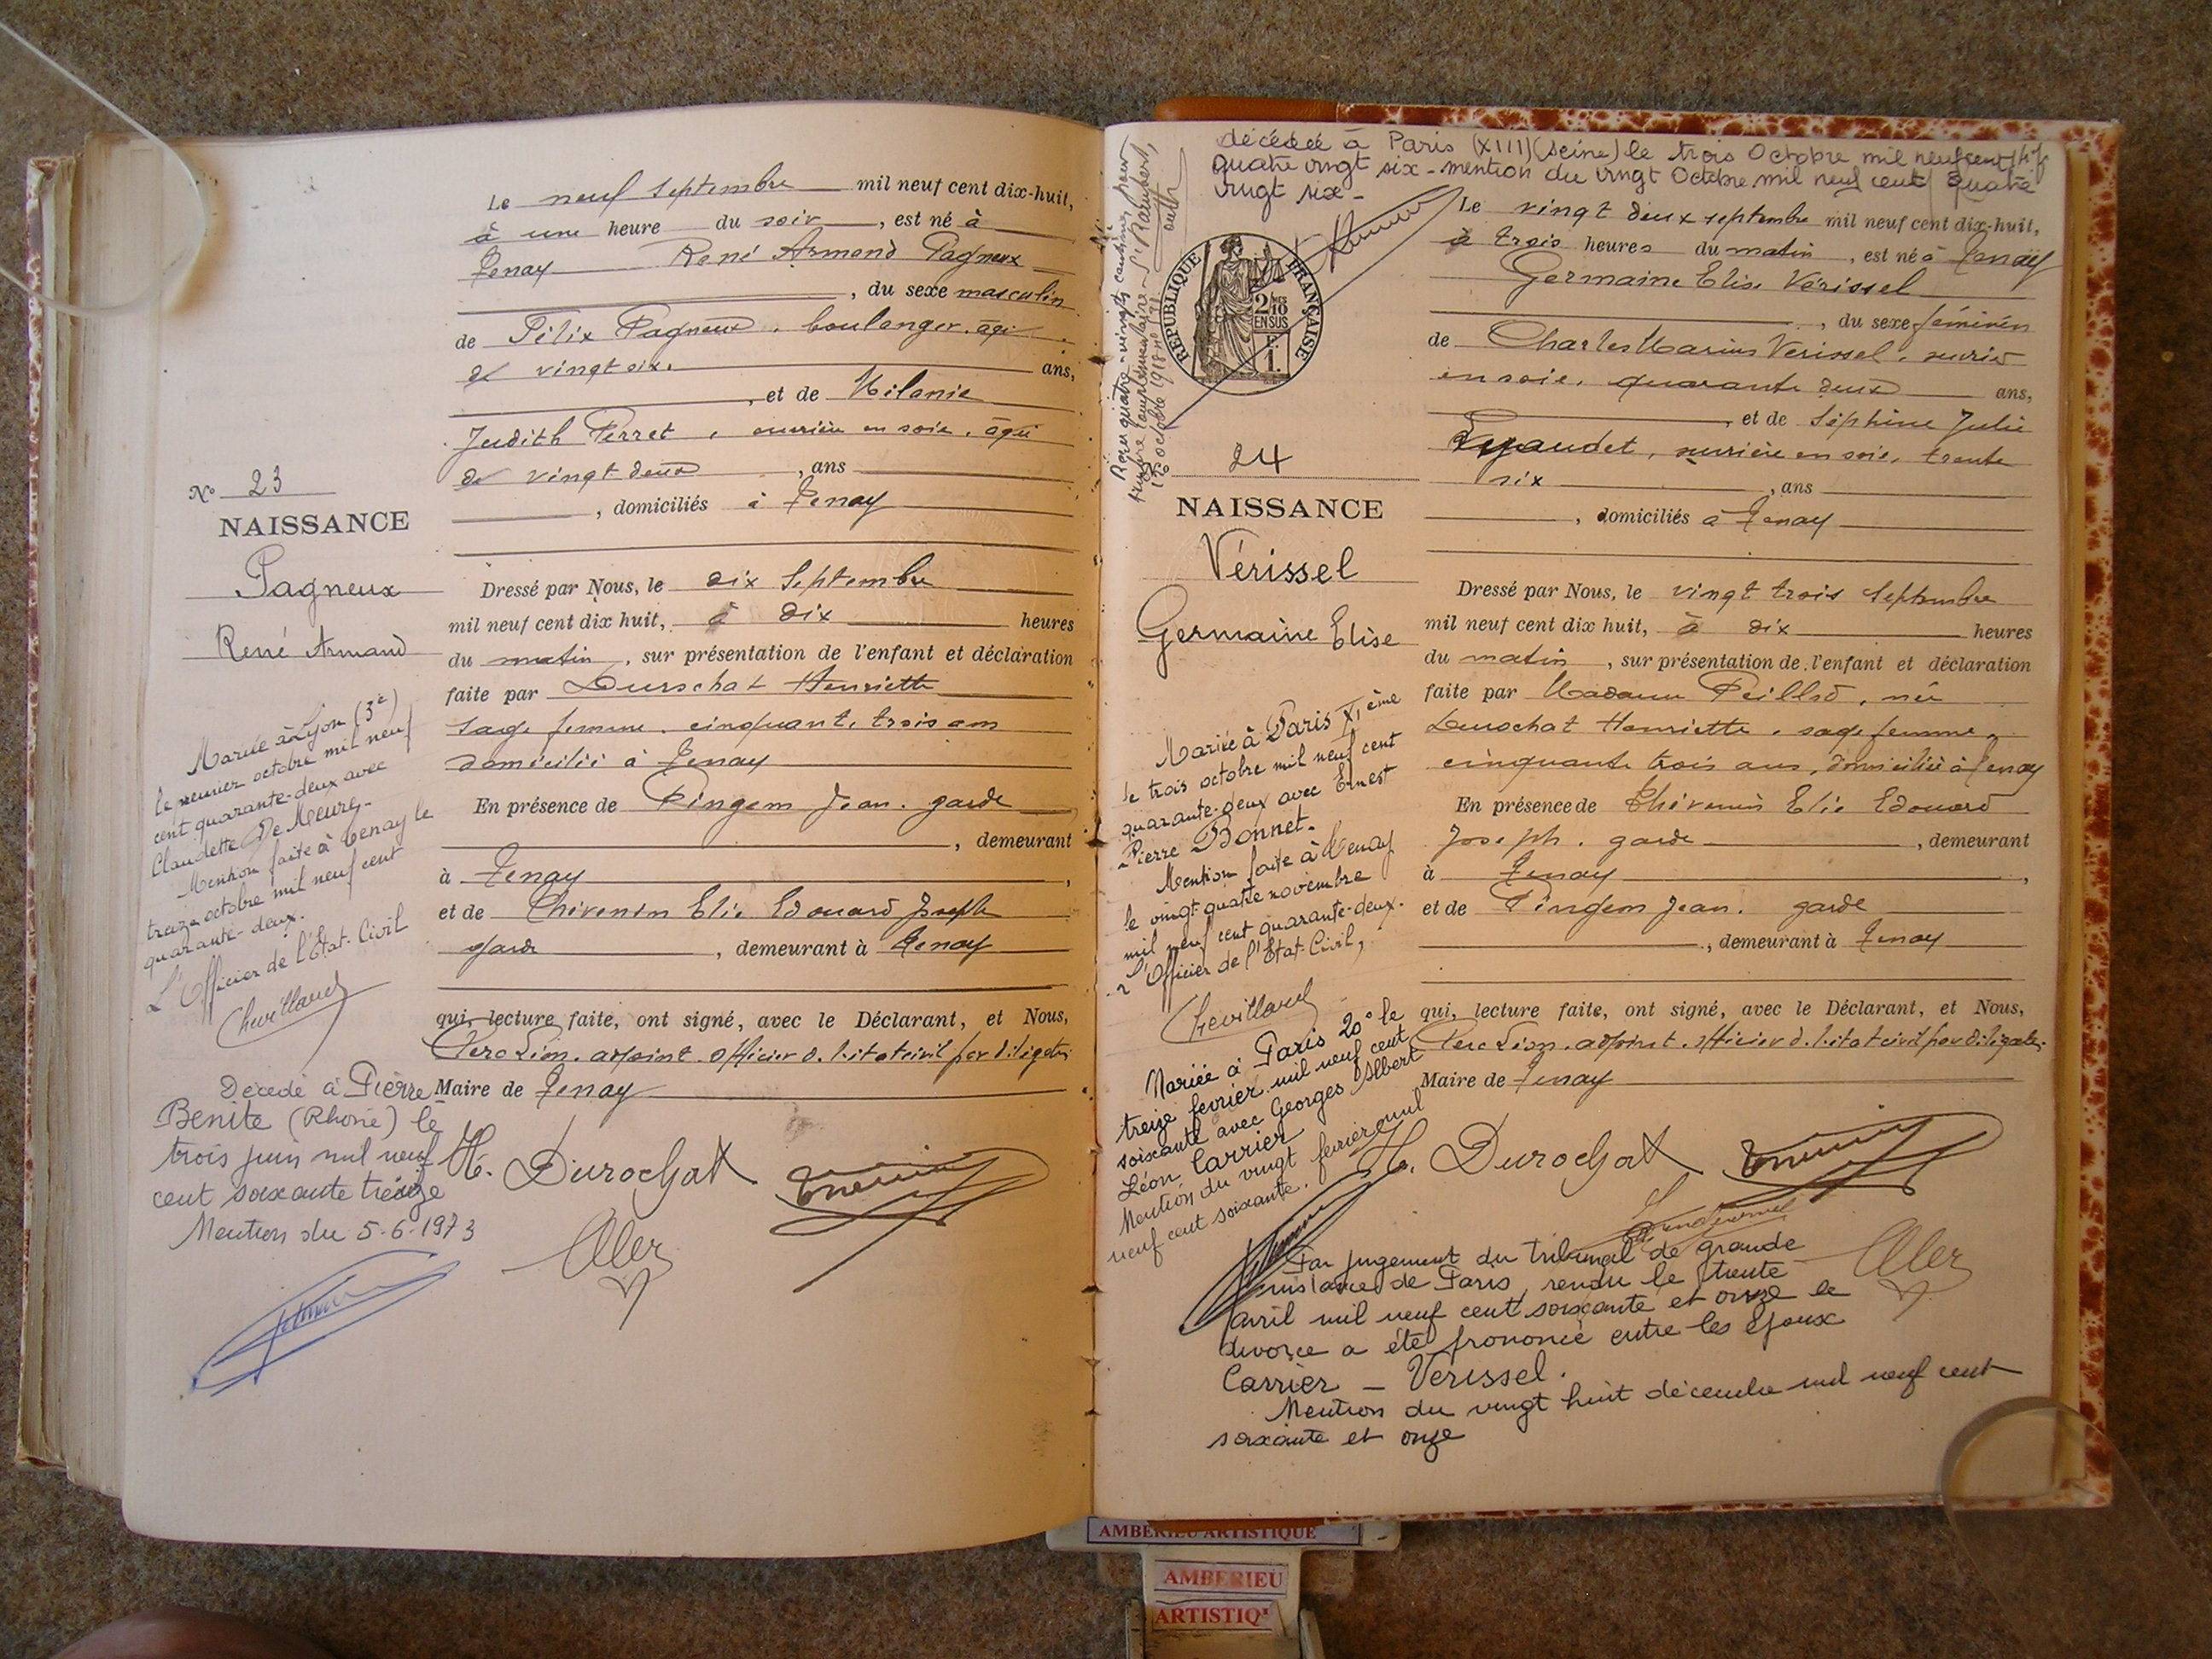 Le neuf Septembre mil neuf cent dix-huit,
à une heure du soir, est né à
Tenay René Armand Pagneux
, du sexe masculin
de Félix Pagneux, boulanger, âgé
de vingt six. ans,
, et de Mélanie
Judith Perret, ouvrière en soie, âgée
de vingt deux, ans
, domiciliés à Tenay
Dressé par Nous, le dix Septembre
mil neuf cent dix huit, à dix heures
du matin, sur présentation de l'enfant et déclaration
faite par Durochat Henriette
sage femme, cinquante trois ans
domiciliée à Tenay
En présence de Pingem Jean, garde
, demeurant
à Tenay,
et de Thévenin Elie Edouard Joseph
garde, demeurant à Tenay
qui, lecture faite, ont signé, avec le Déclarant, et Nous,
Clerc Léon, adjoint officier de l'état civil par délégation
Maire de Tenay
H. Durochat
N° 23
NAISSANCE
Pagneux
René Armand
Marié à Lyon (3e)
le premier octobre mil neuf
cent quarante-deux avec
Claudette De Meure.
Mention faite à Tenay le
treize octobre mil neuf cent
quarante-deux.
L'Officier de l'Etat-Civil
Chevilland
Décédé à Pierre
Benite (Rhone) le
trois juin mil neuf
cent soixante treize
Mention du 5-6-1973
décédée à Paris (XIII) (Seine) le trois Octobre mil neuf cent
quatre vingt six - mention du vingt Octobre mil neuf cent quatre
vingt six -
RÉPUBLIQUE FRANÇAISE
2/10 EN SUS
24
NAISSANCE
Vérissel
Germaine Elise
Mariée à Paris XIème
le trois octobre mil neuf cent
quarante-deux avec Ernest
Pierre Bonnet.
Mention faite à Tenay
le vingt-quatre novembre
mil neuf cent quarante-deux.
L'Officier de l'Etat-Civil,
Chevilland
Mariée à Paris 20e le
treize fevrier mil neuf cent
soixante avec Georges Albert
Léon Carrier
Mention du vingt fevrier mil
neuf cent soixante.
Le vingt deux septembre mil neuf cent dix-huit,
à trois heures du matin, est né à Tenay
Germaine Elise Vérissel
, du sexe féminin
de Charles Marius Verissel, ouvrier
en soie, quarante deux ans,
et de Séphine Julie
Reynaudet, ouvrière en soie, trente
six, ans
, domiciliés à Tenay
Dressé par Nous, le vingt trois Septembre
mil neuf cent dix huit, à dix heures
du matin, sur présentation de l'enfant et déclaration
faite par Madame Peillod, née
Durochat Henriette, sage femme,
cinquante trois ans, domiciliée à Tenay
En présence de Thévenin Elie Edouard
Joseph, garde, demeurant
à Tenay,
et de Pingem Jean, garde
, demeurant à Tenay
qui, lecture faite, ont signé, avec le Déclarant, et Nous,
Clerc Léon, adjoint officier de l'état civil par délégation
Maire de Tenay
H. Durochat
Par jugement du tribunal de grande
instance de Paris, rendu le trente
avril mil neuf cent soixante et onze le
divorce a été prononcé entre les époux
Carrier - Verissel.
Mention du vingt huit décembre mil neuf cent
soixante et onze
AMBERIEU ARTISTIQUE
AMBERIEU
ARTISTIQ